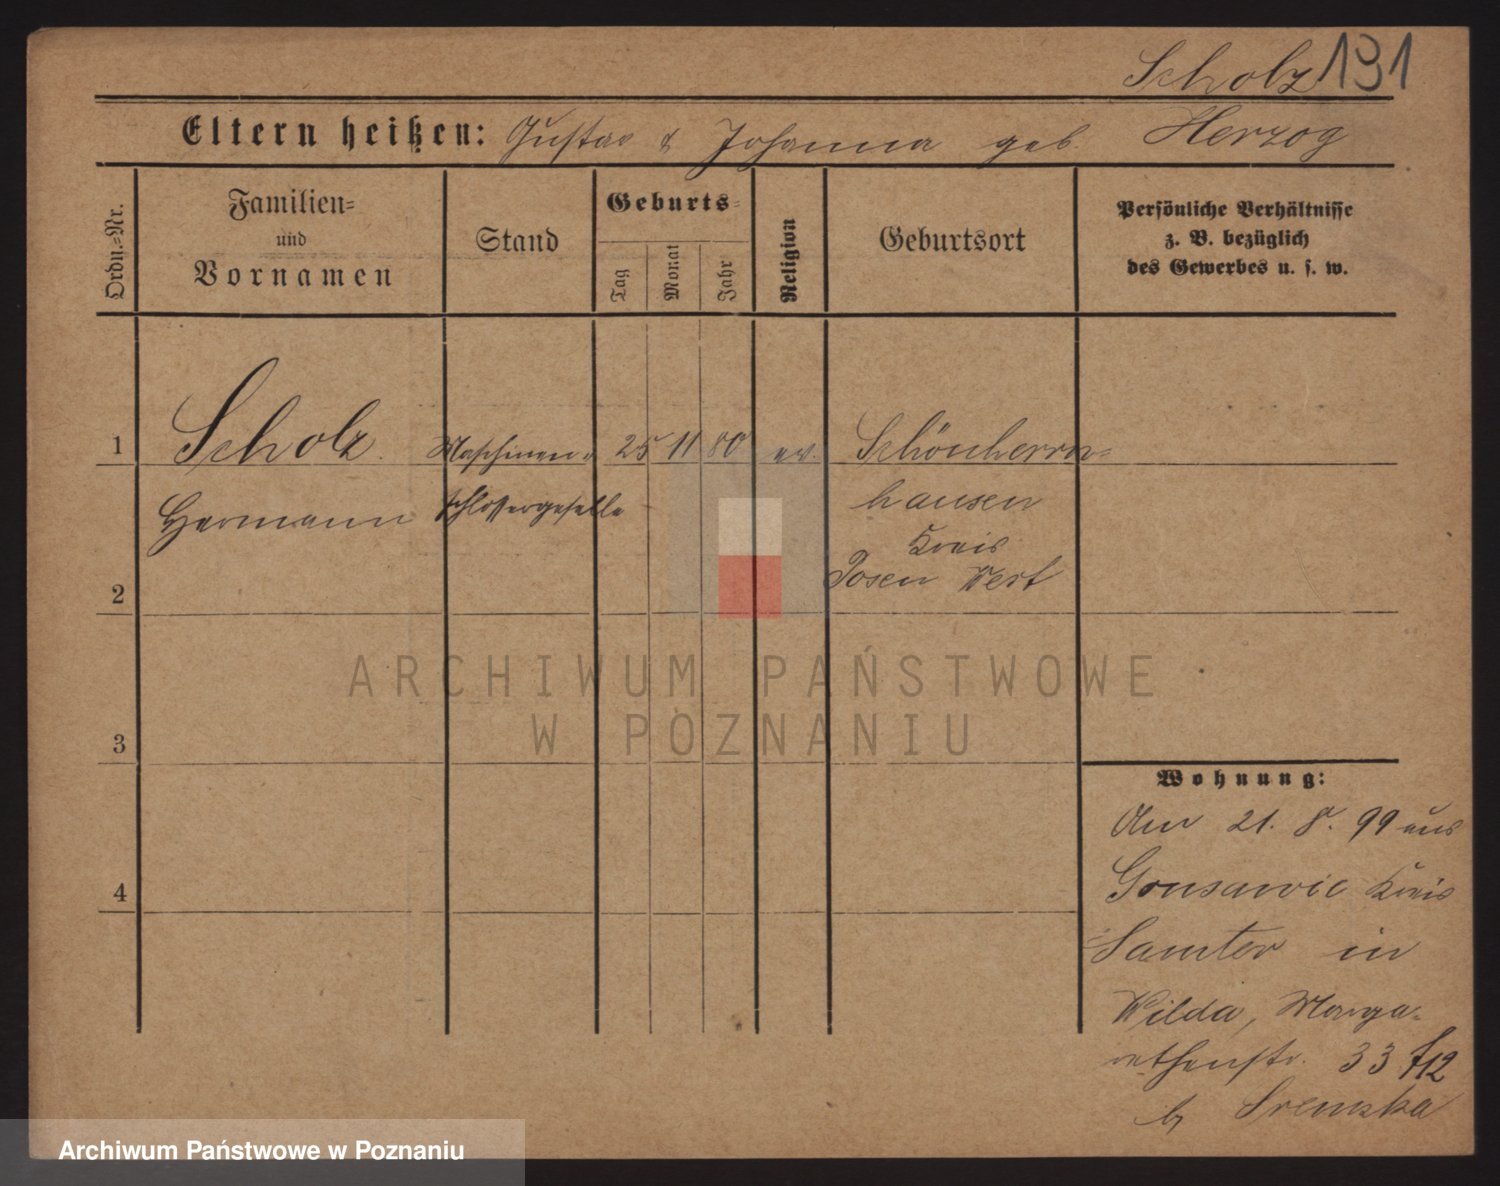 Scholz 191
Eltern heißen: Gustav & Johanna geb. Herzog
Ordn.=Nr.
Familien=
und
Vornamen
Stand
Geburts=
Tag
Monat
Jahr
Religion
Geburtsort
Persönliche Verhältnisse
z. B. bezüglich
des Gewerbes u. s. w.
1 Scholz. Maschinen= 25 11 80 ev. Schönherrn=
Hermann schlossergeselle hausen
Kreis
2 Posen West
ARCHIWUM PAŃSTWOWE
W POZNANIU
3
Wohnung:
Am 21. 8. 99 aus
4 Kreis
Samter in
Wilda, Marga=
rethenstr. 33
b/ Sremska
Archiwum Państwowe w Poznaniu